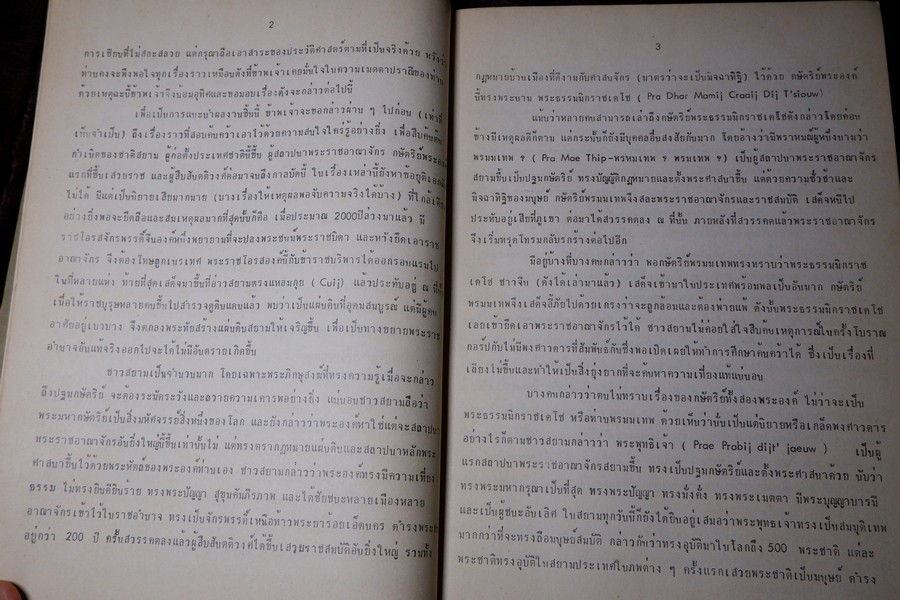 2
การเขียนที่ไม่สละสลวย แต่กรุณาถือเอาสาระของประวัติศาสตร์ตามที่เป็นจริงด้วย หวังว่า
ท่านคงจะพึงพอใจทุกเรื่องราวเหมือนดังที่ข้าพเจ้าเคยมั่นใจในความเมตตาปราณีของท่าน
ด้วยเหตุฉะนี้ข้าพเจ้าจึงน้อมอุทิศและขอมอบเรื่องดังจะกล่าวต่อไปนี้
เพื่อเป็นการแนะนำผลงานชิ้นนี้ ข้าพเจ้าจะขอกล่าวผ่าน ๆ ไปก่อน (เท่าที่
เห็นจำเป็น) ถึงเรื่องราวที่สอบค้นคว้าเอาไว้ด้วยความสนใจใคร่รู้อย่างยิ่ง เพื่อสืบค้นต้น
กำเนิดของชาติสยาม ผู้ก่อตั้งประเทศชาตินี้ขึ้น ผู้สถาปนาพระราชอาณาจักร กษัตริย์พระองค์
แรกที่ขึ้นเสวยราช และผู้สืบสันตติวงศ์ต่อมาจนถึงกาลบัดนี้ ในเรื่องเหล่านี้ยังหาข้อยุติเอกฉันท์
ไม่ได้ มีแต่เป็นนิยายเสียมากมาย (บางเรื่องให้เหตุผลพอจับความจริงได้บ้าง) ที่ใกล้เคียง
อย่างยิ่งพอจะยึดถือและสมเหตุผลมากที่สุดนั้นก็คือ เมื่อประมาณ 2000ปีล่วงมาแล้ว มี
ราชโอรสจักรพรรดิ์จีนองค์หนึ่งพยายามที่จะปลงพระชนม์พระราชบิดา และหวังยึดเอาราช
อาณาจักร จึงต้องโทษถูกเนรเทศ พระราชโอรสองค์นี้กับข้าราชบริพารได้ออกรอนแรมไป
ในที่หลายแห่ง ท้ายที่สุดเสด็จมาขึ้นที่อ่าวสยามตรงแหลมกุย (Cuij) แล้วประทับอยู่ ณ ที่นั้น
เมื่อให้ราชบุรุษหลายคนขึ้นไปสำรวจดูดินแดนแล้ว พบว่าเป็นแผ่นดินที่อุดมสมบูรณ์ แต่มีผู้คน
อาศัยอยู่เบาบาง จึงตกลงพระทัยสร้างแผ่นดินสยามให้เจริญขึ้น เพื่อเป็นทางขยายพระราช
อำนาจอันแท้จริงออกไปจะได้ไม่มีอันตรายเกิดขึ้น
ชาวสยามเป็นจำนวนมาก โดยเฉพาะพระภิกษุสงฆ์ที่ทรงความรู้เมื่อจะกล่าว
ถึงปฐมกษัตริย์ จะต้องระมัดระวังและถวายความเคารพอย่างยิ่ง แน่นอนชาวสยามถือว่า
พระมหากษัตริย์เป็นสิ่งมหัศจรรย์สิ่งหนึ่งของโลก และยังกล่าวว่าพระองค์หาใช่แต่จะสถาปนา
พระราชอาณาจักรอันยิ่งใหญ่นี้ขึ้นเท่านั้นไม่ แต่ทรงตรากฎหมายแผ่นดินและสถาปนาหลักพระ
ศาสนาขึ้นไว้ด้วยพระหัตถ์ของพระองค์ท่านเอง ชาวสยามกล่าวว่าพระองค์ทรงมีความเที่ยง
ธรรม ไม่ทรงยินดียินร้าย ทรงพระปัญญา สุขุมคัมภีรภาพ และได้ชัยชนะหลายเมืองหลาย
อาณาจักรเข้าไว้ในราชอำนาจ ทรงเป็นจักรพรรดิ์เหนือท้าวพระยาร้อยเอ็ดนคร ดำรงพระชนม์
อยู่กว่า 200 ปี ครั้นสวรรคตลงแล้วผู้สืบสันตติวงศ์ได้ขึ้นเสวยราชสมบัติอันยิ่งใหญ่ รวมทั้ง
3
กฎหมายบ้านเมืองที่ดีงามกับศาสนจักร (มาตรว่าจะเป็นมิจฉาทิฐิ) ไว้ด้วย กษัตริย์พระองค์
นี้ทรงพระนาม พระธรรมมิกราชเดโช ( Pra Dhar Mamij Craaij Dij T'siouw)
แม้นว่าหลายคนสามารถเล่าถึงกษัตริย์พระธรรมมิกราชเดโชดังกล่าวโดยค่อน
ข้างมีเหตุผลดีก็ตาม แต่กระนั้นก็ยังมีบุคคลอื่นสงสัยกันมาก โดยอ้างว่ามีพราหมณ์ผู้หนึ่งนามว่า
พรมมเทพ ฯ ( Pra Mae Thip-พรหมเทพ ฯ พรมเทพ ฯ) เป็นผู้สถาปนาพระราชอาณาจักร
สยามขึ้นเป็นปฐมกษัตริย์ ทรงบัญญัติกฎหมายและตั้งพระศาสนาขึ้น แต่ด้วยความชั่วช้าและ
มิจฉาทิฐิของมนุษย์ กษัตริย์พรมมเทพจึงสละพระราชอาณาจักรและราชสมบัติ เสด็จหนีไป
ประทับอยู่เสียที่ภูเขา ต่อมาได้สวรรคตลง ณ ที่นั้น ภายหลังที่สวรรคตแล้วพระราชอาณาจักร
จึงเริ่มทรุดโทรมกลับรกร้างต่อไปอีก
มีอยู่บางที่บางคนกล่าวว่า พอกษัตริย์พรมมเทพทรงทราบว่าพระธรรมมิกราช
เดโช ชาวจีน (ดังได้เล่ามาแล้ว) เสด็จเข้ามาในประเทศพร้อมพลเป็นอันมาก กษัตริย์
พรมมเทพจึงเสด็จลี้ภัยไปด้วยเกรงว่าจะถูกล้อมและต้องพ่ายแพ้ ดังนั้นพระธรรมมิกราชเดโช
เลยเข้ายึดเอาพระราชอาณาจักรไว้ได้ ชาวสยามไม่ค่อยใส่ใจสืบเหตุการณ์ในครั้งโบราณ
กอร์ปกับไม่มีพงศาวดารที่สัมพันธ์กันซึ่งพอเปิดเผยให้ทำการศึกษาค้นคว้าได้ ซึ่งเป็นเรื่องที่
เถียงไม่ขึ้นและทำให้เป็นสิ่งยุ่งยากที่จะค้นหาความเที่ยงแท้แน่นอน
บางคนกล่าวว่าตนไม่ทราบเรื่องของกษัตริย์ทั้งสองพระองค์ ไม่ว่าจะเป็น
พระธรรมมิกราชเดโช หรือท่านพรมมเทพ ด้วยเห็นว่านั่นเป็นแต่นิยายหรือเกล็ดพงศาวดาร
อย่างไรก็ตามชาวสยามกล่าวว่า พระพุทธิเจ้า ( Prae Probij dijt' jaeuw ) เป็นผู้
แรกสถาปนาพระราชอาณาจักรสยามขึ้น ทรงเป็นปฐมกษัตริย์และตั้งพระศาสนาด้วย นับว่า
ทรงพระมหากรุณาเป็นที่สุด ทรงพระปัญญา ทรงมั่งคั่ง ทรงพระเมตตา มีพระบุญญาบารมี
และเป็นผู้ชนะอันเลิศ ในสยามทุกวันนี้ก็ยังได้ยินอยู่เสมอว่าพระพุทธเจ้าทรงเป็นสมมุติเทพ
มากกว่าที่จะทรงถือมนุษย์สมบัติ กล่าวกันว่าทรงอุบัติมาในโลกถึง 500 พระชาติ แต่ละ
พระชาติทรงอุบัติในสยามประเทศในภพต่าง ๆ ครั้งแรกเสวยพระชาติเป็นมนุษย์ ดำรง